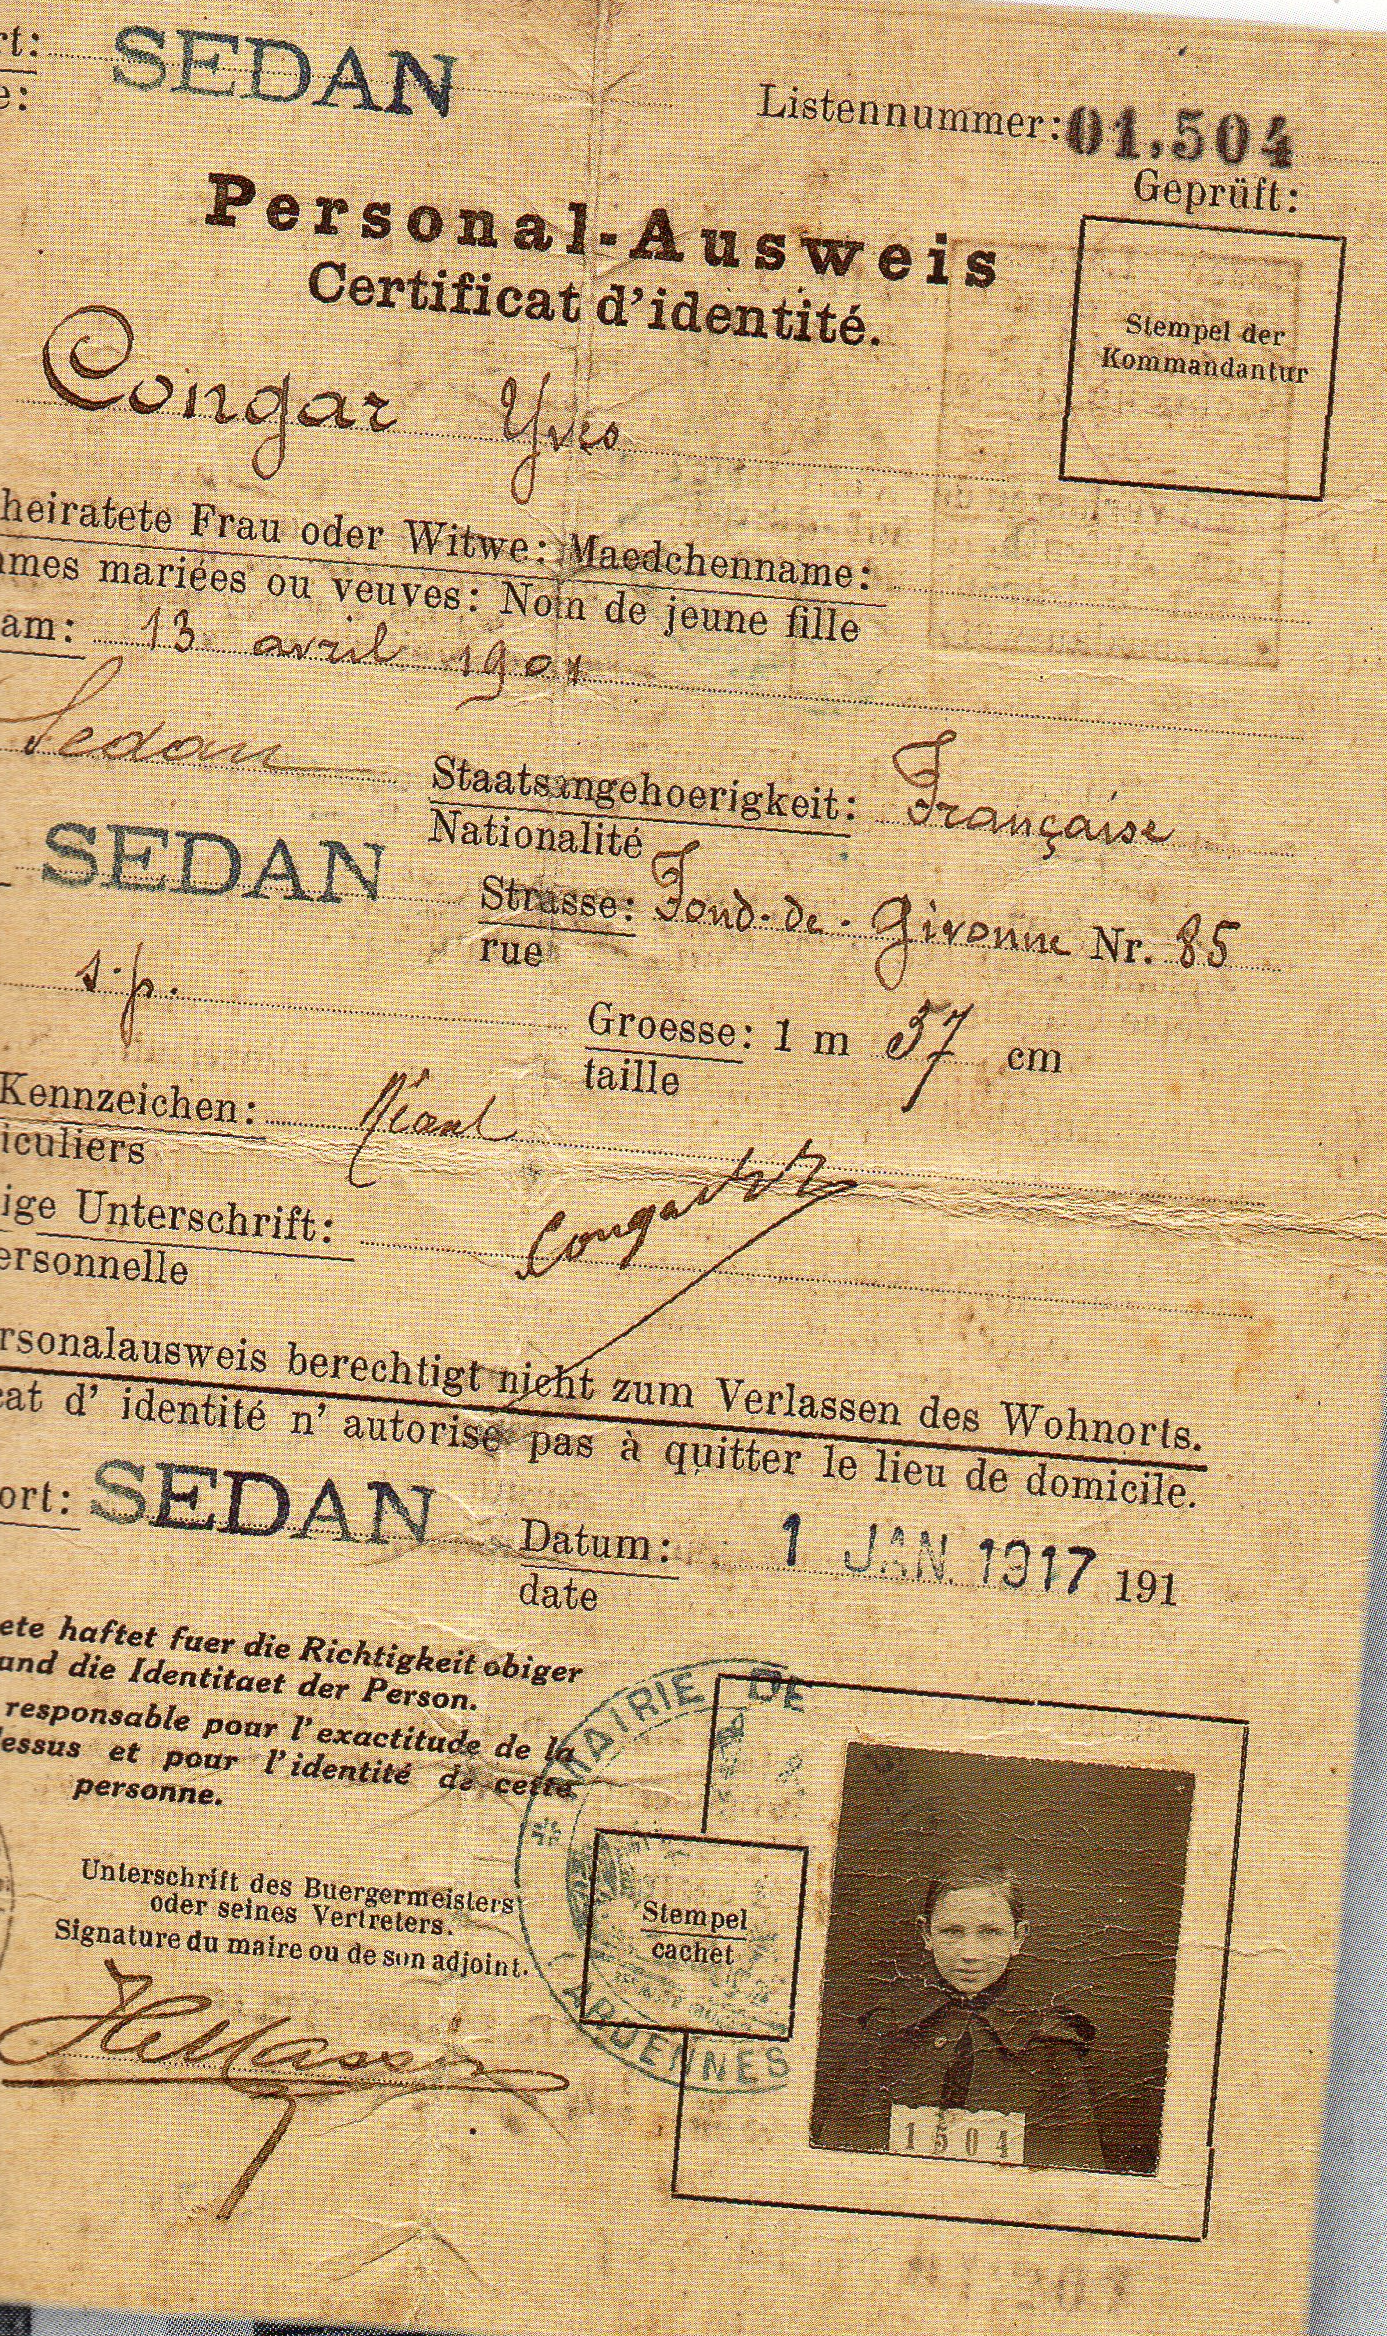 rt: SEDAN
e:
Listennummer: 01.504
Geprüft:
Personal-Ausweis
Certificat d'identité.
Stempel der
Kommandantur
Congar Yves
heiratete Frau oder Witwe: Maedchenname:
mes mariées ou veuves: Nom de jeune fille
am: 13 avril 1904
Sedan Staatsangehoerigkeit: Française
Nationalité
SEDAN Strasse: Fond-de-Givonne Nr. 85
rue
s.p. Groesse: 1 m 37 cm
taille
Kennzeichen: Néant
iculiers
ige Unterschrift: Congar
ersonnelle
rsonalausweis berechtigt nicht zum Verlassen des Wohnorts.
cat d' identité n' autorise pas à quitter le lieu de domicile.
ort: SEDAN Datum: 1 JAN. 1917 191
date
ete haftet fuer die Richtigkeit obiger
und die Identitaet der Person.
responsable pour l'exactitude de la
dessus et pour l'identité de cette
personne.
MAIRIE DE
Unterschrift des Buergermeisters
oder seines Vertreters.
Signature du maire ou de son adjoint.
Stempel
cachet
ARDENNES
1504